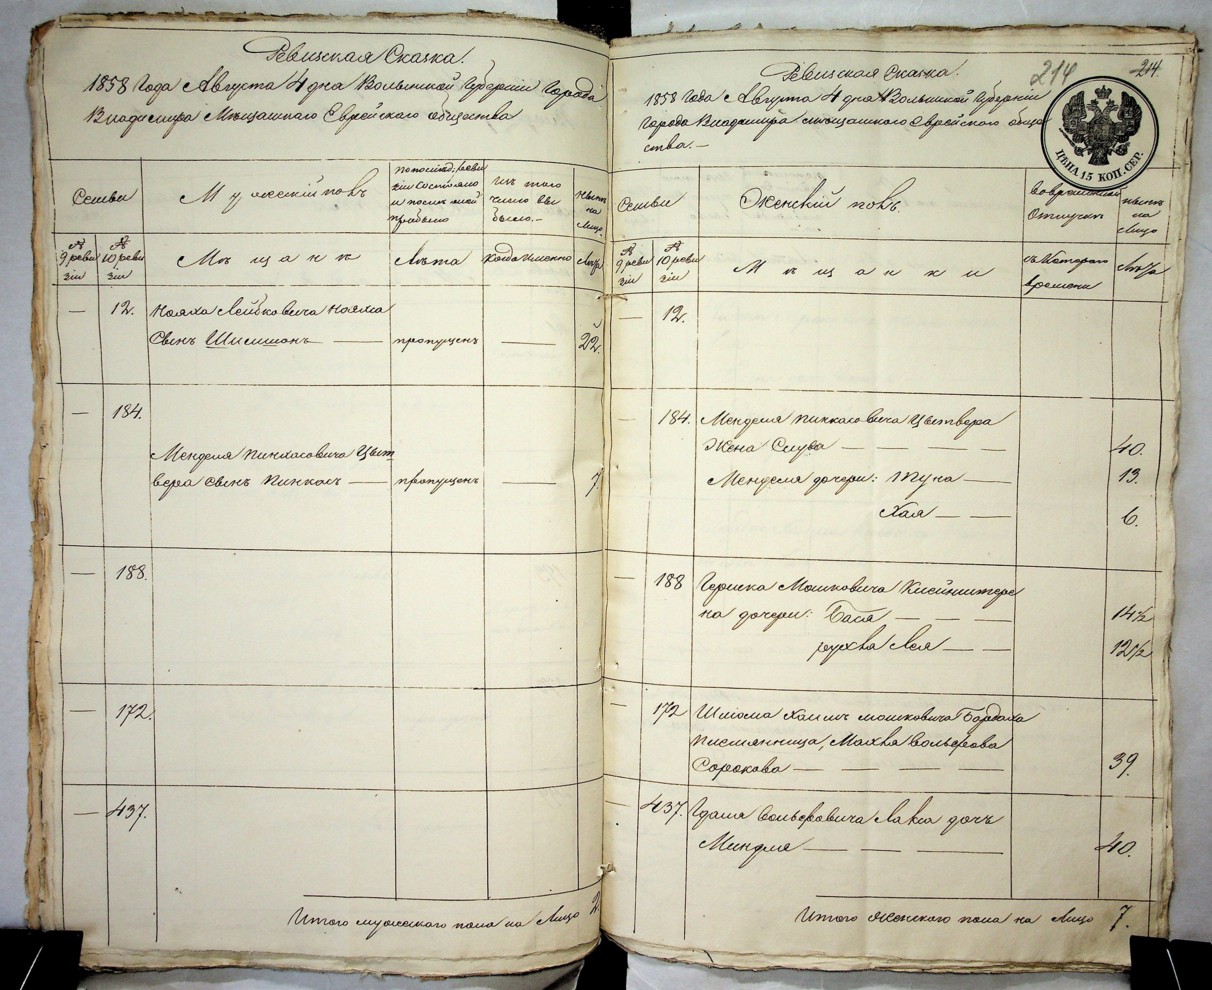 Ревизская Сказка.
1858 Года Августа 4 дня Волынской Губернии Города
Владимира Мещанского Еврейского общества
Семьи
Мужескiй полъ
по последней реви
зiи состояло
и после ней
прибыло
изъ того
числа вы
было.—
ныне
на
Лицо
№
9 реви
зiи
№
10 реви
зiи
Мещане
Лета
когда именно
Лета
— 12. Нояха Лейбковича Нояха
Сынъ Шимшонъ — пропущенъ — 22.
— 184.
Менделя Пинхасовича Цвит
вера сынъ Пинхасъ — пропущенъ — 7.
— 188.
— 172.
— 437.
Итого мужескаго пола на Лицо 2
Ревизская Сказка.
214
214.
1858 Года Августа 4 дня Волынской Губернiи
Города Владимира мещанского Еврейского обще
ства.—
ЦЕНА 15 КОП. СЕР.
Семьи
Женскiй полъ.
во временной
отлучке
ныне
на
Лицо
№
9 реви
зiи
№
10 реви
зiи
Мещанки
съ Которого
времени
Лета
— 12.
— 184. Менделя Пинхасовича Цвитвера
Жена Слува — — — — 40.
Менделя дочери: — 13.
Хая — — 6.
— 188 Гершка Мошковича
на дочери: Бася — — — 14½
Рухля Лея — — 12½
— 172 Шлiома Хаимъ Мошковича Бардаха
племянница, Малка Вольфова
Сорокова — — — — 39.
— 437. Гдаля Вольфовича Лакса дочь
Миндля — — — — 40.
Итого женского пола на Лицо 7.